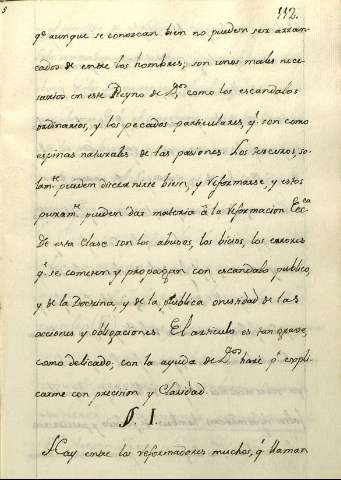 112.
qe aunque se conozcan bien no pueden ser arran-
cados de entre los hombres; son unos males nece-
sarios en este Reyno de Dos como los escandalos
ordinarios, y los pecados particulares, q. son como
espinas naturales de las pasiones. Los terceros, so-
lamte pueden discernirse bien, y reformarse, y estos
puramte pueden dar materia á la reformacion Ecca
De esta Clase son los abusos, los bicios, los errores
q. se cometen y propagan con escandalo publico,
y de la Doctrina, y de la publica onestidad de las
acciones y obligaciones. El articulo es tan grave,
como delicado; con la ayuda de Dos haré p. expli-
carme con precision y Claridad.
§. I.
Hay entre los reformadores muchos, q. llaman